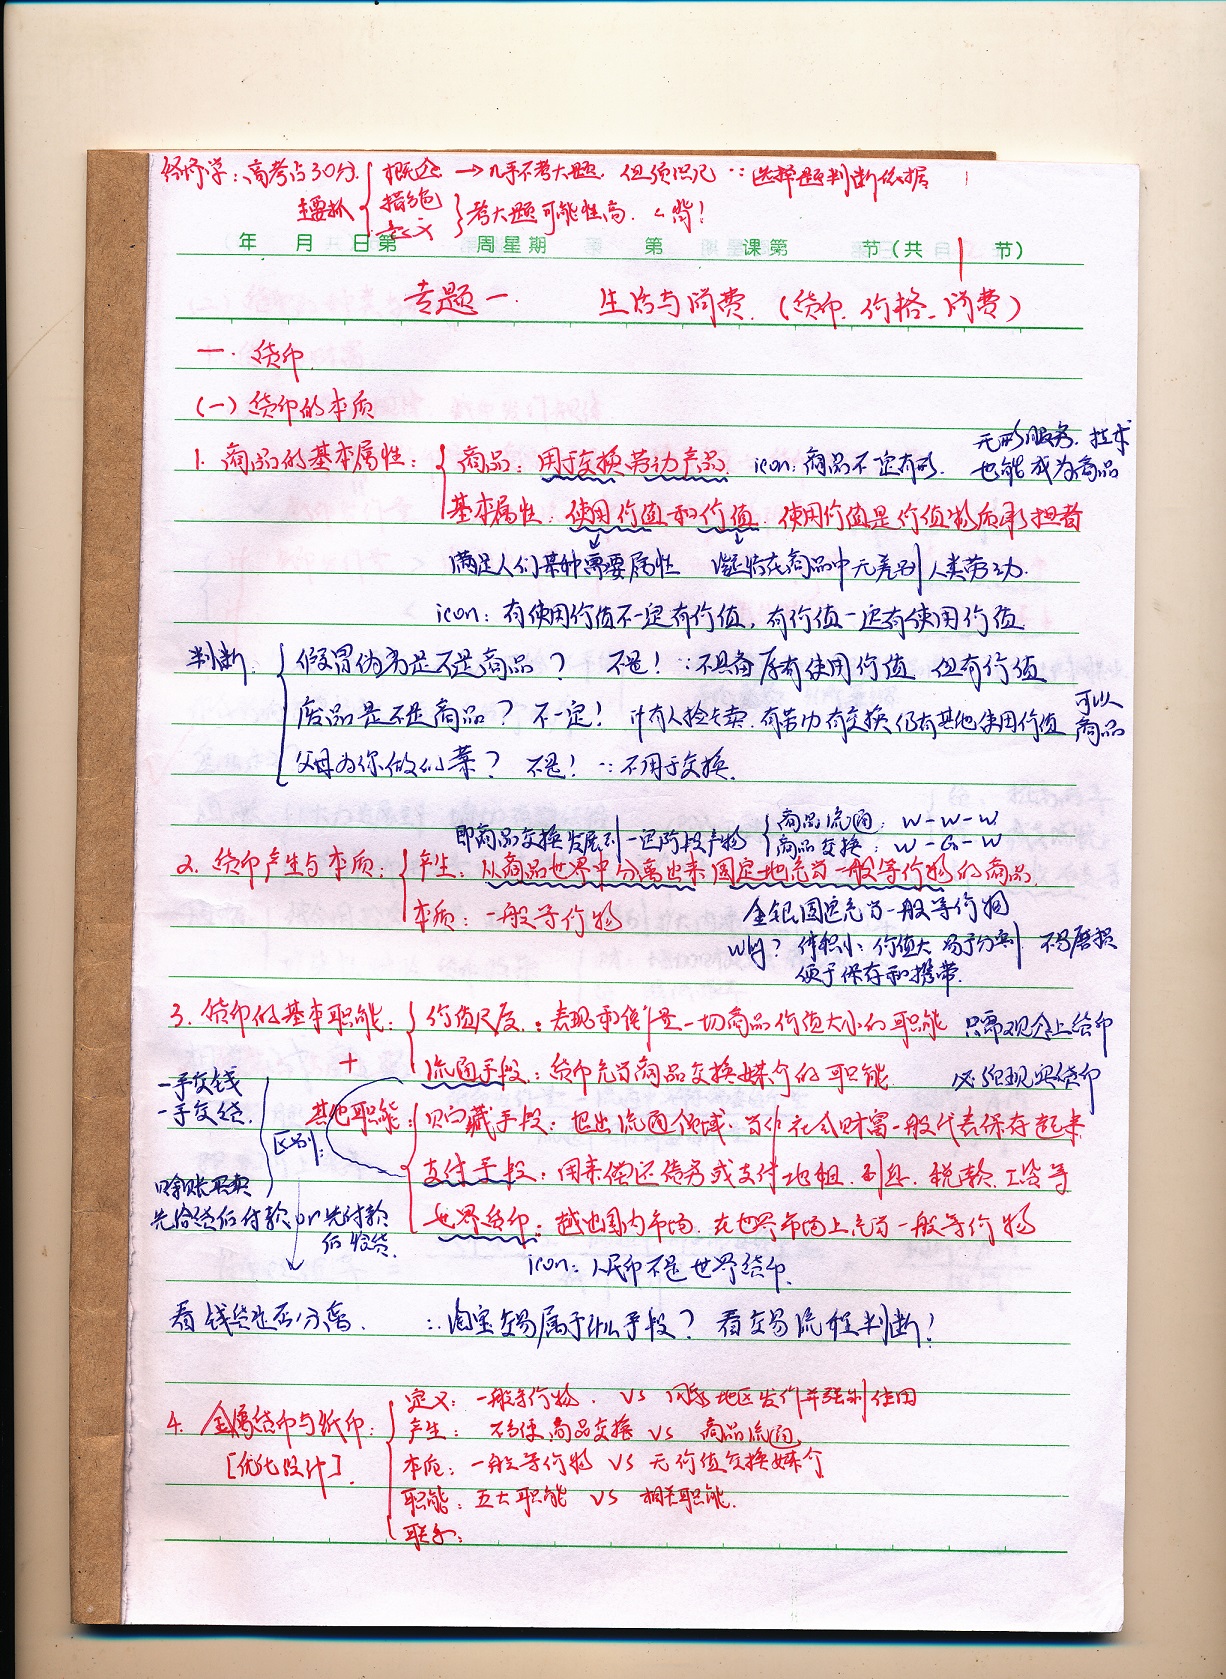 经济学:高考占30分 { 概念 → 几乎不考大题. 但须识记 ∵ 选择题判断依据
主要抓 { 措施
意义 } 考大题可能性高. ∠背!
年 月 日第 周星期 第 课第 节(共 1 节)
专题一. 生活与消费.(货币. 价格. 消费)
一. 货币
(一) 货币的本质
无形服务. 技术
也能成为商品
1. 商品的基本属性: { 商品: 用于交换劳动产品. icon: 商品不一定有形.
基本属性: 使用价值和价值. 使用价值是价值物质承担者
满足人们某种需要属性 凝结在商品中无差别人类劳动.
icon: 有使用价值不一定有价值, 有价值一定有使用价值
判断. { 假冒伪劣是不是商品? 不是! ∵不具备原有使用价值 但有价值
废品是不是商品? 不一定! 若有人捡去卖. 有劳动有交换仍有其他使用价值 可以
商品
父母为你做的菜? 不是! ∵不用于交换.
即商品交换发展到一定阶段产物 { 商品流通: W-W-W
商品交换: W-G-W
2. 货币产生与本质: { 产生: 从商品世界中分离出来固定地充当一般等价物的商品.
本质: 一般等价物
金银固定充当一般等价物
why? 体积小. 价值大 易于分割 不易磨损
便于保存和携带.
3. 货币的基本职能: { 价值尺度: 表现和衡量一切商品价值大小的职能 只需观念上货币
+ 流通手段: 货币充当商品交换媒介的职能. 必须现实货币
一手交钱
一手交货.
区别:
其他职能: { 贮藏手段: 退出流通领域. 当作社会财富一般代表保存起来
支付手段: 用来偿还债务或支付地租. 利息. 税款. 工资等
赊账买卖
先给货后付款 or 先付款
后给货.
世界货币: 越出国内市场. 在世界市场上充当一般等价物
icon: 人民币不是世界货币.
看钱货是否分离. ∴淘宝交易属于什么手段? 看交易流程判断!
4. 金属货币与纸币: { 定义: 一般等价物. VS 国家地区发行并强制使用
产生: 不方便商品交换 VS 商品流通
[优化设计]. 本质: 一般等价物 VS 无价值交换媒介
职能: 五大职能 VS 相关职能.
联系: